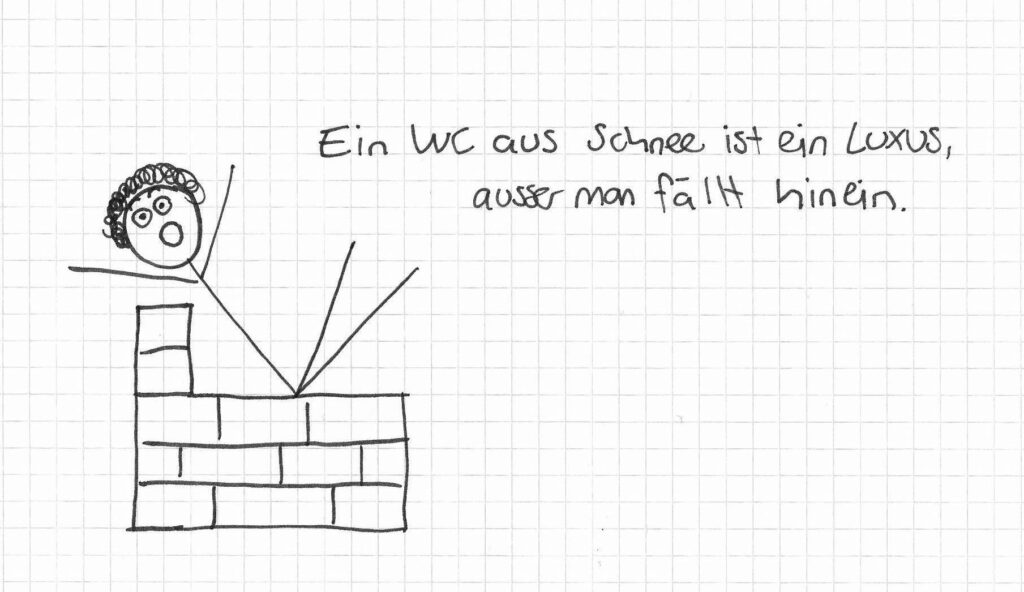 Ein WC aus Schnee ist ein Luxus,
ausser man fällt hinein.